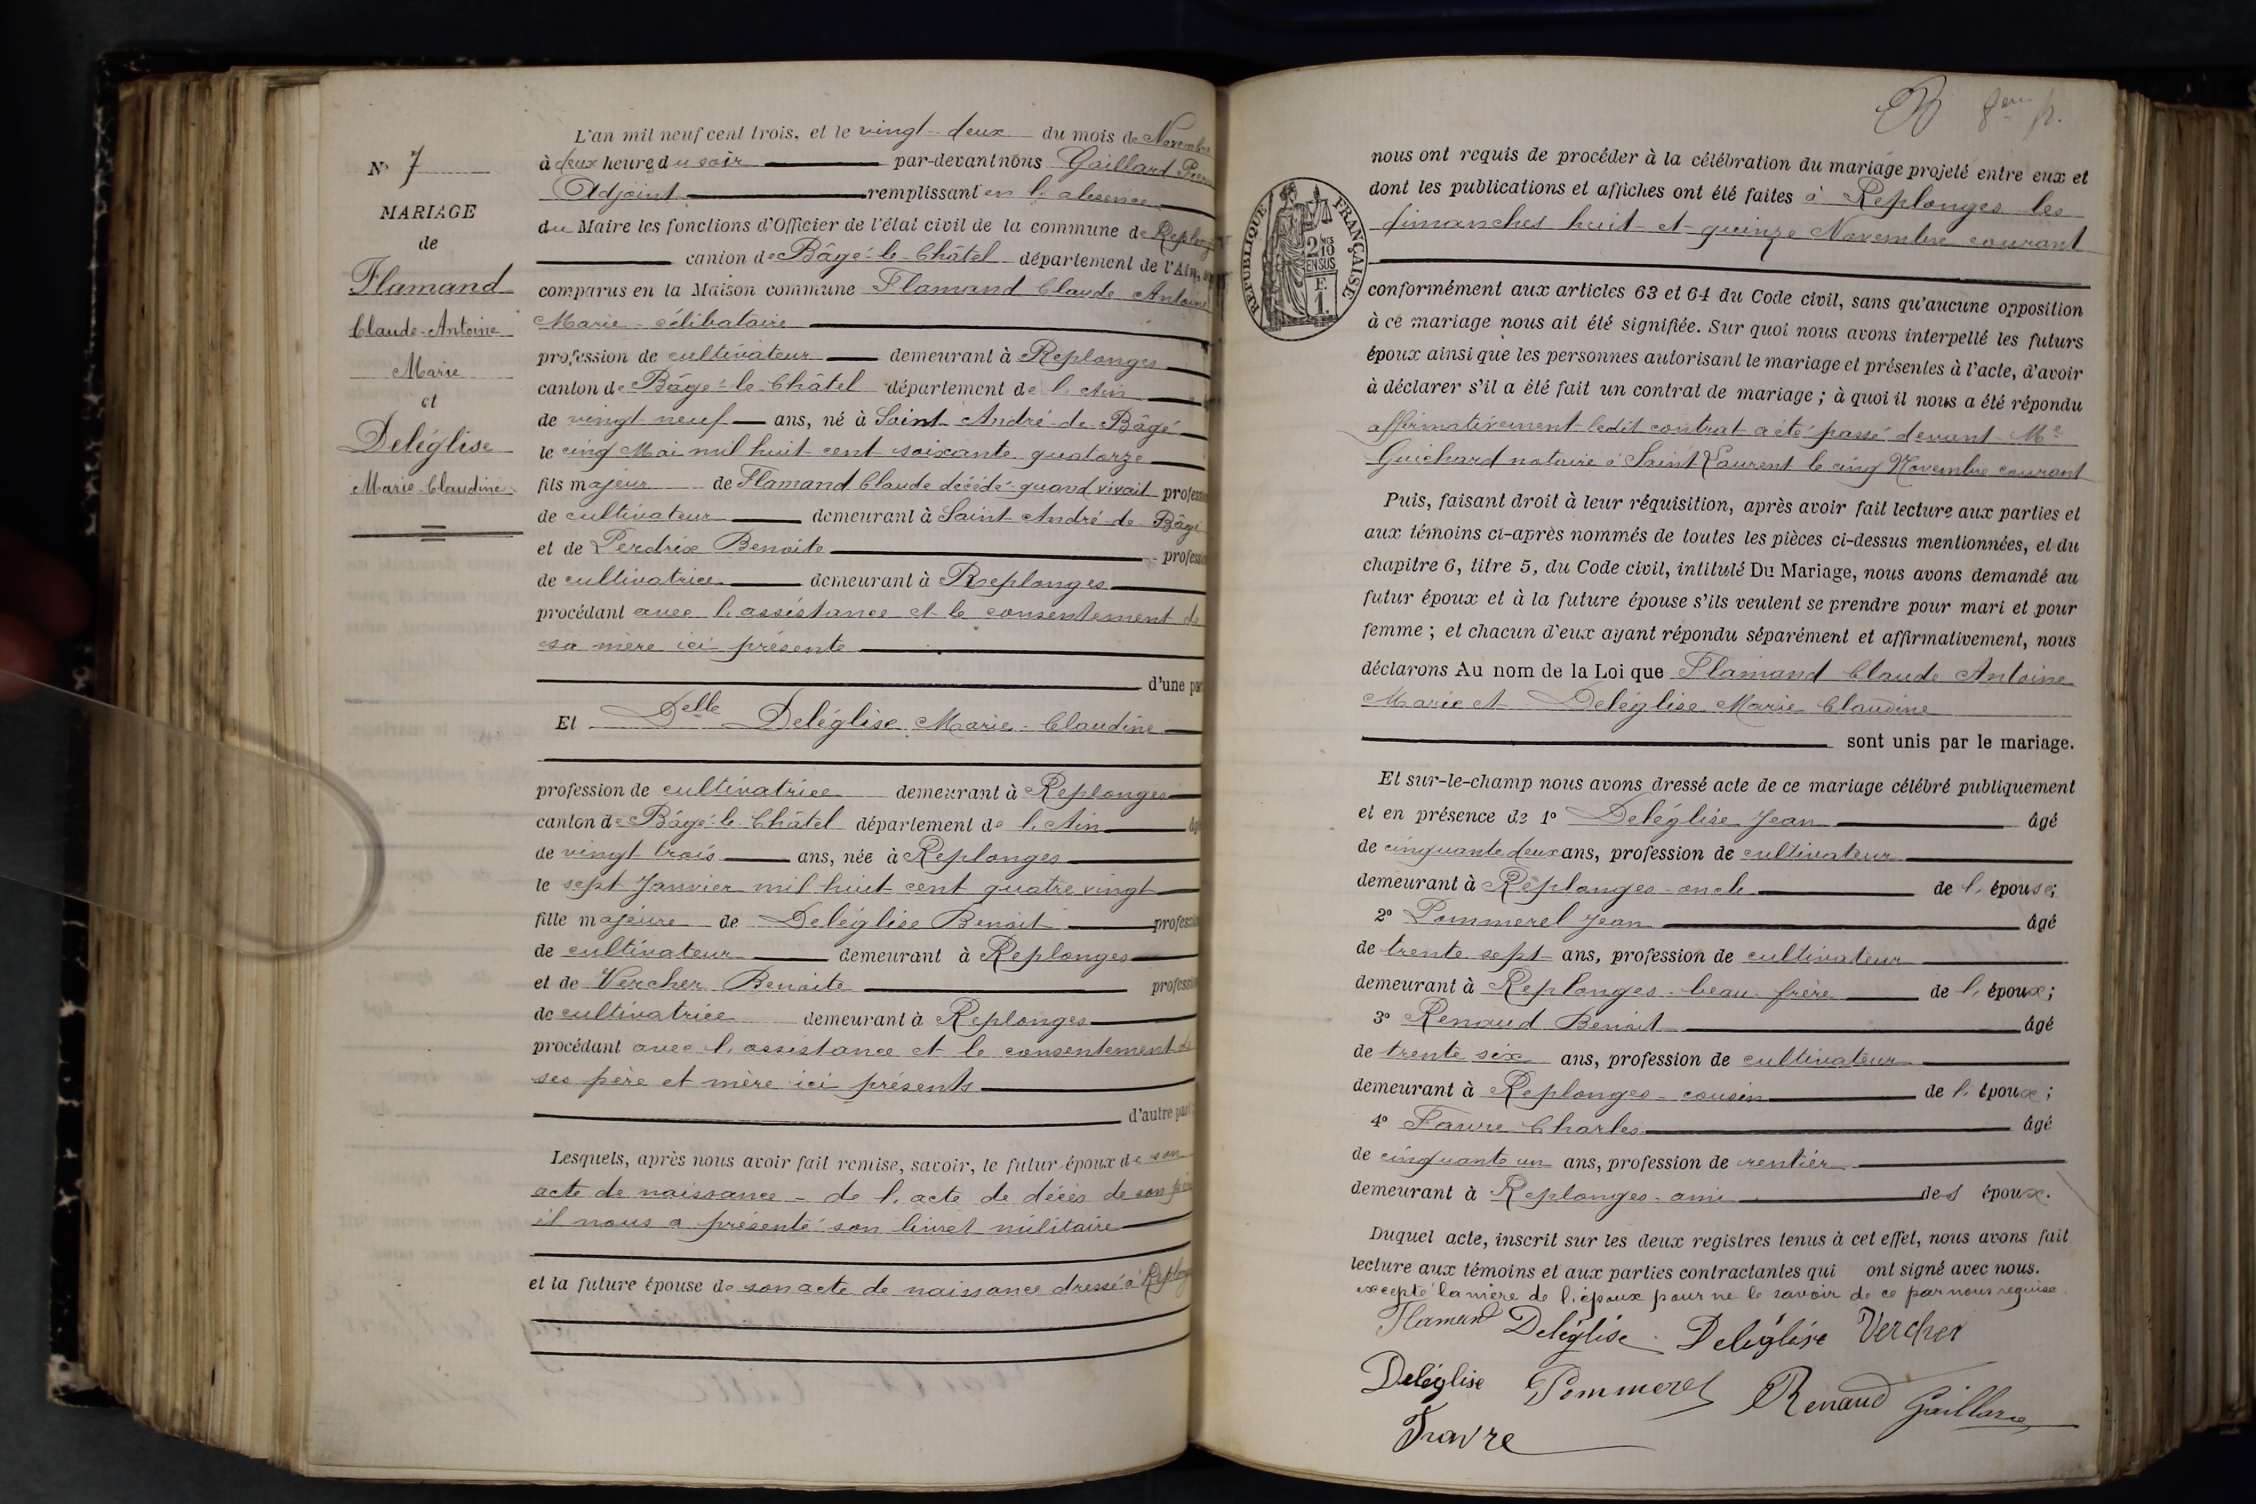 N° 7
MARIAGE
de
Flamand
Claude-Antoine
Marie
et
Deléglise
Marie-Claudine
L'an mil neuf cent trois, et le vingt-deux du mois de Novembre
à deux heures du soir par-devant nous Gaillard Pierre
Adjoint remplissant en l'absence
du Maire les fonctions d'Officier de l'état civil de la commune de Replonges
canton de Bâgé-le-Châtel département de l'Ain,
comparus en la Maison commune Flamand Claude Antoine
Marie célibataire
profession de cultivateur demeurant à Replonges
canton de Bâgé-le-Châtel département de l'Ain
de vingt neuf ans, né à Saint-André-de-Bâgé
le cinq Mai mil huit cent soixante quatorze
fils majeur de Flamand Claude décédé quand vivait profession
de cultivateur demeurant à Saint-André-de-Bâgé
et de Perdrix Benoite profession
de cultivatrice demeurant à Replonges
procédant avec l'assistance et le consentement de
sa mère ici présente
d'une part
Et Delle Deléglise Marie-Claudine
profession de cultivatrice demeurant à Replonges
canton de Bâgé-le-Châtel département de l'Ain âgé
de vingt trois ans, née à Replonges
le sept Janvier mil huit cent quatre vingt
fille majeure de Deléglise Benoit profession
de cultivateur demeurant à Replonges
et de Vercher Benoite profession
de cultivatrice demeurant à Replonges
procédant avec l'assistance et le consentement de
ses père et mère ici présents
d'autre part
Lesquels, après nous avoir fait remise, savoir, le futur époux de son
acte de naissance - de l'acte de décès de son père
il nous a présenté son livret militaire
et la future épouse de son acte de naissance dressé à Replonges
8em p.
RÉPUBLIQUE FRANÇAISE
2 10mes
EN SUS
F.
1.
nous ont requis de procéder à la célébration du mariage projeté entre eux et
dont les publications et affiches ont été faites à Replonges les
dimanches huit et quinze Novembre courant
conformément aux articles 63 et 64 du Code civil, sans qu'aucune opposition
à ce mariage nous ait été signifiée. Sur quoi nous avons interpellé les futurs
époux ainsi que les personnes autorisant le mariage et présentes à l'acte, d'avoir
à déclarer s'il a été fait un contrat de mariage ; à quoi il nous a été répondu
affirmativement ledit contrat a été passé devant Me
Guichard notaire à Saint Laurent le cinq Novembre courant
Puis, faisant droit à leur réquisition, après avoir fait lecture aux parties et
aux témoins ci-après nommés de toutes les pièces ci-dessus mentionnées, et du
chapitre 6, titre 5, du Code civil, intitulé Du Mariage, nous avons demandé au
futur époux et à la future épouse s'ils veulent se prendre pour mari et pour
femme ; et chacun d'eux ayant répondu séparément et affirmativement, nous
déclarons Au nom de la Loi que Flamand Claude Antoine
Marie et Deléglise Marie Claudine
sont unis par le mariage.
Et sur-le-champ nous avons dressé acte de ce mariage célébré publiquement
et en présence de 1° Deléglise Jean âgé
de cinquante deux ans, profession de cultivateur
demeurant à Replonges - oncle de l'épouse;
2° Pommerel Jean âgé
de trente sept ans, profession de cultivateur
demeurant à Replonges - beau-frère de l'époux;
3° Renaud Benoit âgé
de trente six ans, profession de cultivateur
demeurant à Replonges - cousin de l'époux;
4° Favre Charles âgé
de cinquante un ans, profession de rentier
demeurant à Replonges - ami des époux.
Duquel acte, inscrit sur les deux registres tenus à cet effet, nous avons fait
lecture aux témoins et aux parties contractantes qui ont signé avec nous.
excepté la mère de l'époux pour ne le savoir de ce par nous requise.
Flamand Deléglise Deléglise Vercher
Deléglise Pommerel Renaud Gaillard
Favre